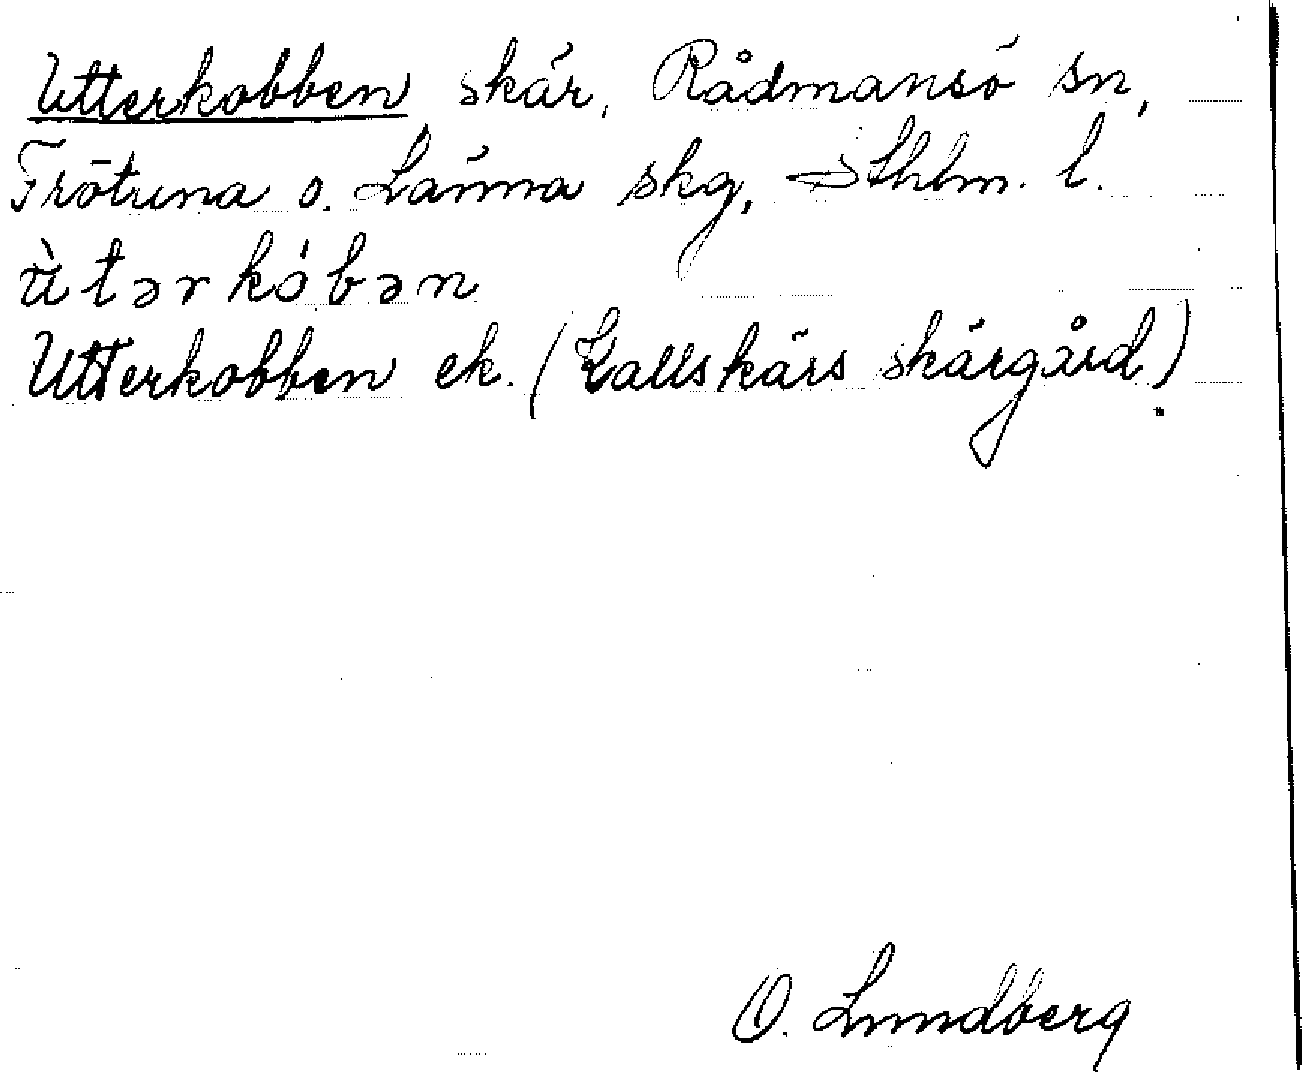 Utterkobben skär, Rådmansö sn,
Frötuna o. Länna skg, Sthlm. l.
ùtərkóbən
Utterkobben ek. (Kallskärs skärgård)
O. Lundberg